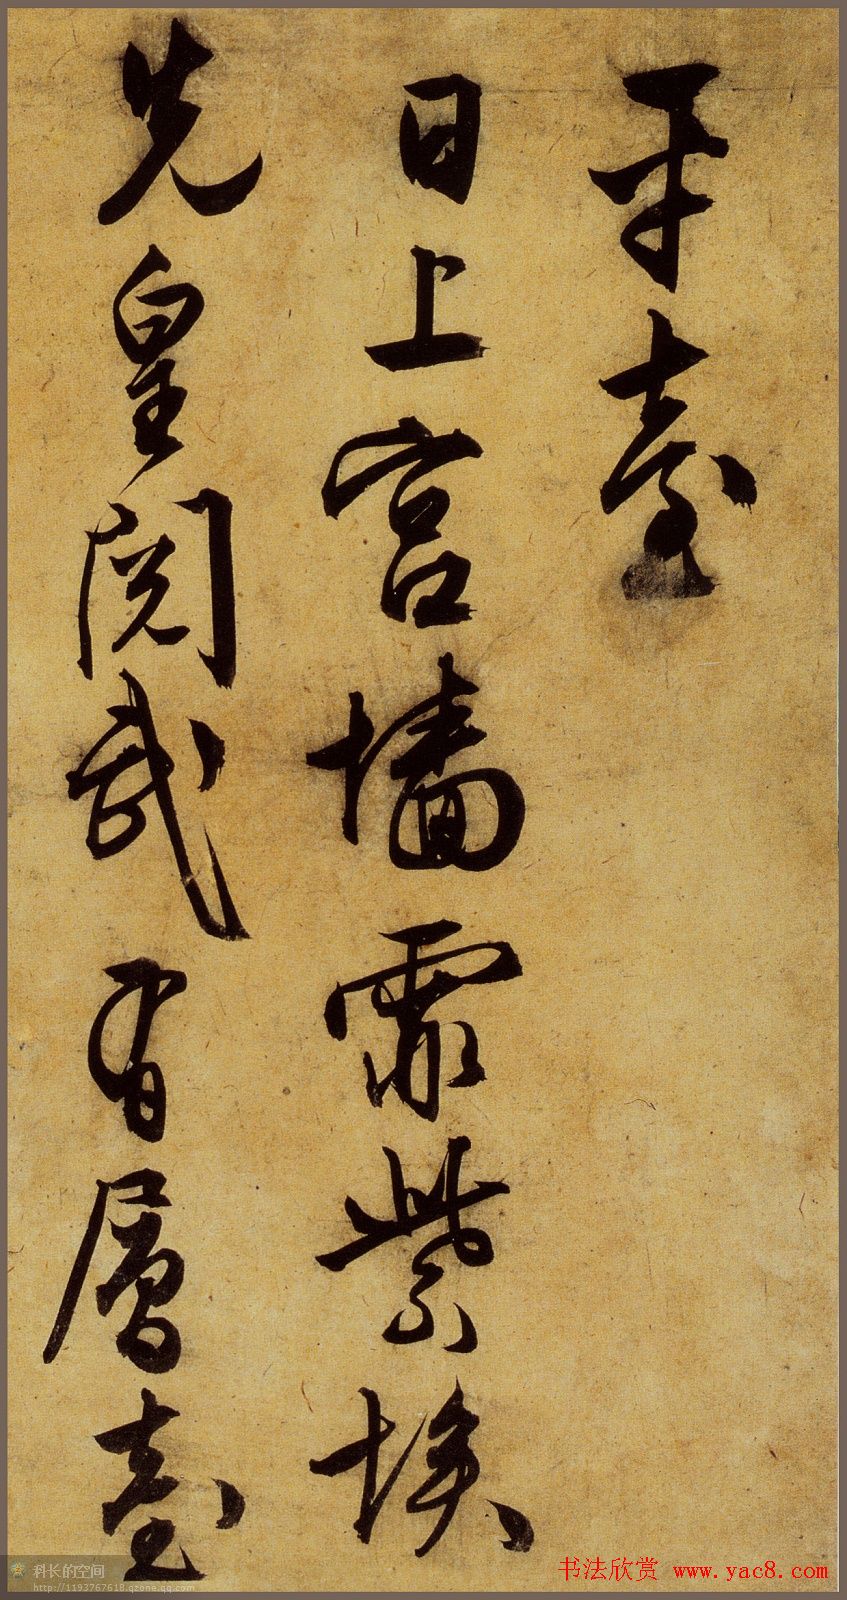 平臺
日上宮墻霏紫埃
先皇閱武有層臺
科长的空间
http://1193767618.qzone.qq.com
书法欣赏 www.yac8.com